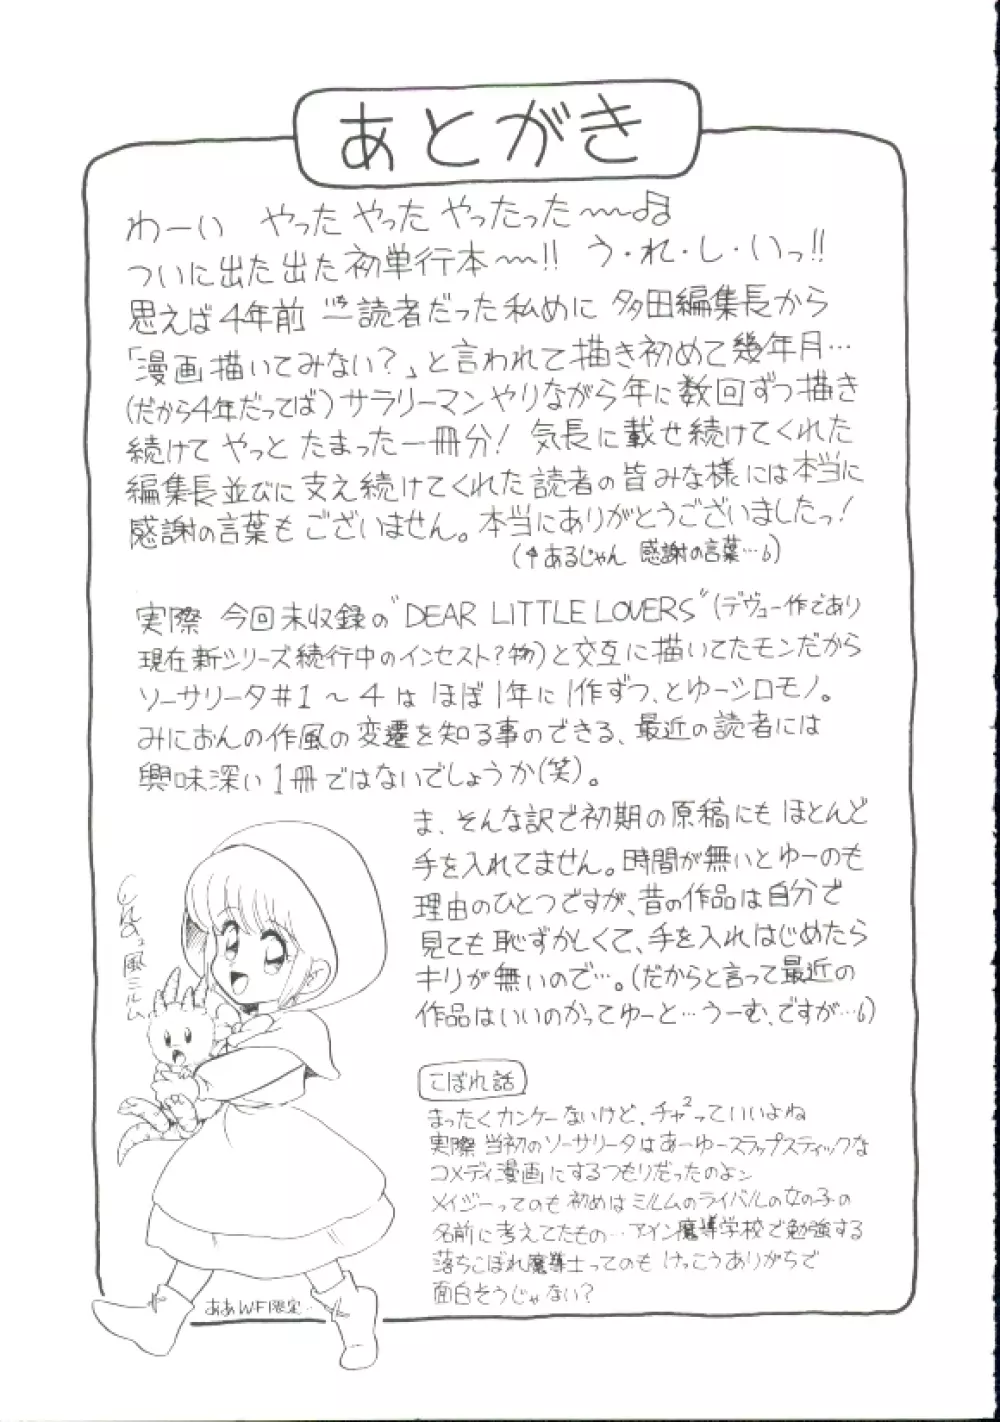 あとがき
わーい やった やった やったった〜〜♫
ついに出た出た初単行本〜〜!! う・れ・し・いっ!!
思えば4年前 一読者だった私めに 多田編集長から
いち
「漫画描いてみない?」と言われて描き初めて幾年月…
(だから4年だってば)サラリーマンやりながら年に数回ずつ描き
続けて やっと たまった一冊分! 気長に載せ続けてくれた
編集長並びに支え続けてくれた読者の皆みな様には本当に
感謝の言葉もございません。本当にありがとうございましたっ!
(↑あるじゃん 感謝の言葉…)
実際 今回未収録の"DEAR LITTLE LOVERS"(デヴュー作であり
現在新シリーズ続行中のインセスト?物)と交互に描いてたモンだから
ソーサリータ#1〜4は ほぼ1年に1作ずつ、とゆーシロモノ。
みにおんの作風の変遷を知る事のできる、最近の読者には
興味深い1冊ではないでしょうか(笑)。
ま、そんな訳で初期の原稿にも ほとんど
手を入れてません。時間が無いとゆーのも
理由のひとつですが、昔の作品は自分で
見ても恥ずかしくて、手を入れはじめたら
キリが無いので…。(だからと言って最近の
作品はいいのかってゆーと…うーむ、ですが…)
こぼれ話
まったくカンケーないけど、チャ²っていいよね
実際 当初のソーサリータはあーゆースラップスティックな
コメディ漫画にするつもりだったのよン
メイジーってのも 初めは ミルムのライバルの女の子の
名前に考えてたもの…アイン魔導学校で勉強する
落ちこぼれ魔導士ってのも けっこうありがちで
面白そうじゃない?
風ミルム
ああWF限定…